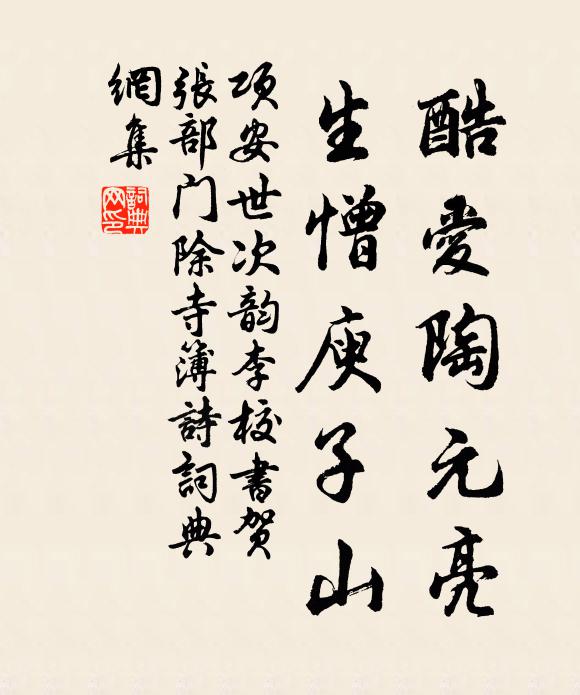 酷愛陶元亮
生憎庾子山
项安世次韵李校書贺
張部门除寺簿詩詞典
網集
詞典
网印